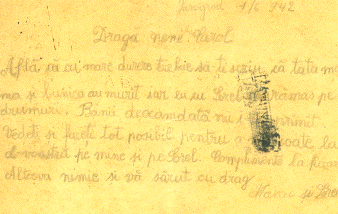 1/6 942
Draga nene Carol
Află că cu mare durere trebuie să-ți scriu, că tata ma
ma și bunica au murit iar eu cu Srol am rămas pe
drumuri. Banii deocamdată nu primit
Vedeți și faceți tot posibil pentru a scoate la
d-voastră pe mine și pe Srol. Complimente la
Altceva nimic și vă sărut cu drag
și